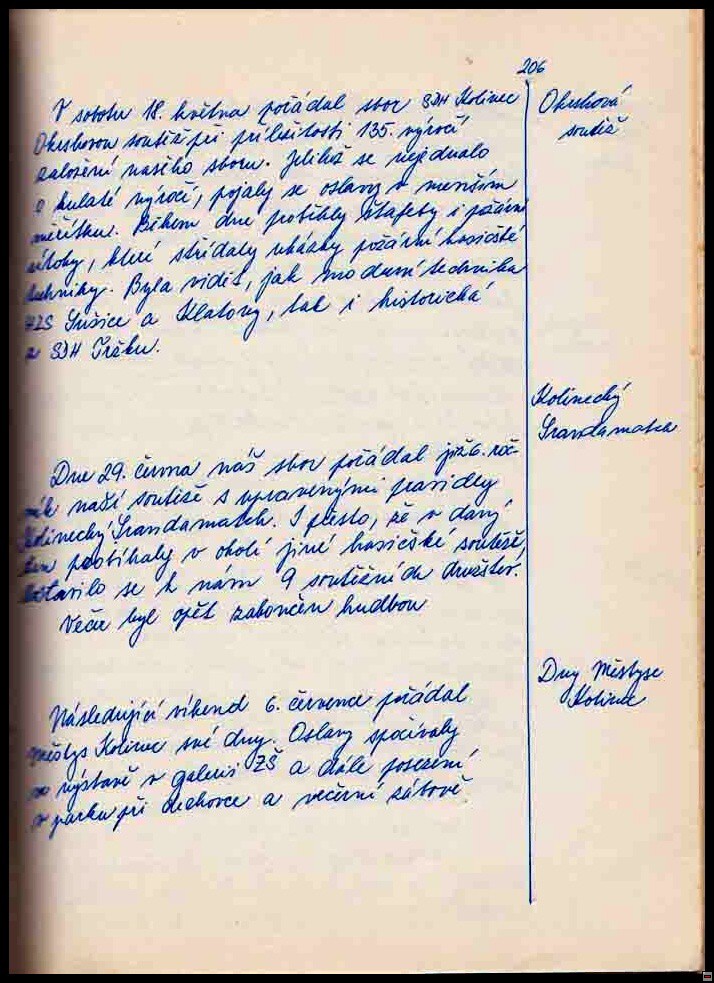 206
V sobotu 18. května pořádal sbor SDH Kolinec
Okrskovou soutěž při příležitosti 135. výročí
založení našeho sboru. Jelikož se nejednalo
o kulaté výročí, pojaly se oslavy v menším
měřítku. Během dne proběhly štafety i požární
útoky, které střídaly ukázky požární hasičské
techniky. Byla vidět, jak moderní technika
HZS Sušice a Klatovy, tak i historická
z SDH
Okrsková
soutěž
Dne 29. června náš sbor pořádal již 6. roč-
ník naší soutěže s upravenými pravidly
Kolinecký Srandamatch. I přesto, že v daný
den probíhaly v okolí jiné hasičské soutěže,
dostavilo se k nám 9 soutěžních družstev.
Večer byl opět zakončen hudbou
Kolinecký
Srandamatch
Následující víkend 6. července pořádal
městys Kolinec své dny. Oslavy spočívaly
ve výstavě v galerii ZŠ a dále posezení
v parku při dechovce a večerní zábavě.
Dny Městyse
Kolinec